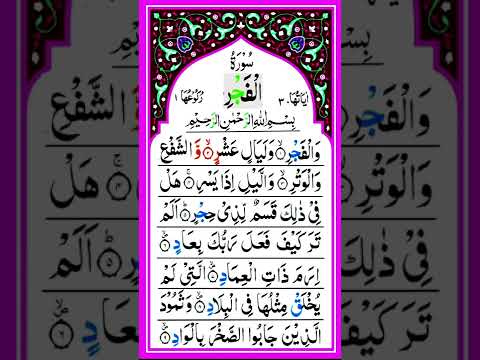 سُوْرَةُ
الْفَجْرِ
اٰيَاتُهَا ٣٠
رُكُوْعُهَا ١
بِسْمِ اللهِ الرَّحْمٰنِ الرَّحِيْمِ
وَالْفَجْرِۙ۝ وَلَيَالٍ عَشْرٍۙ۝ وَّالشَّفْعِ
وَالْوَتْرِۙ۝ وَالَّيْلِ اِذَا يَسْرِۚ۝ هَلْ
فِىْ ذٰلِكَ قَسَمٌ لِّذِىْ حِجْرٍؕ۝ اَلَمْ
تَرَ كَيْفَ فَعَلَ رَبُّكَ بِعَادٍۙ۝
اِرَمَ ذَاتِ الْعِمَادِۙ۝ الَّتِىْ لَمْ
يُخْلَقْ مِثْلُهَا فِى الْبِلَادِۙ۝ وَثَمُوْدَ
الَّذِيْنَ جَابُوا الصَّخْرَ بِالْوَادِۙ۝